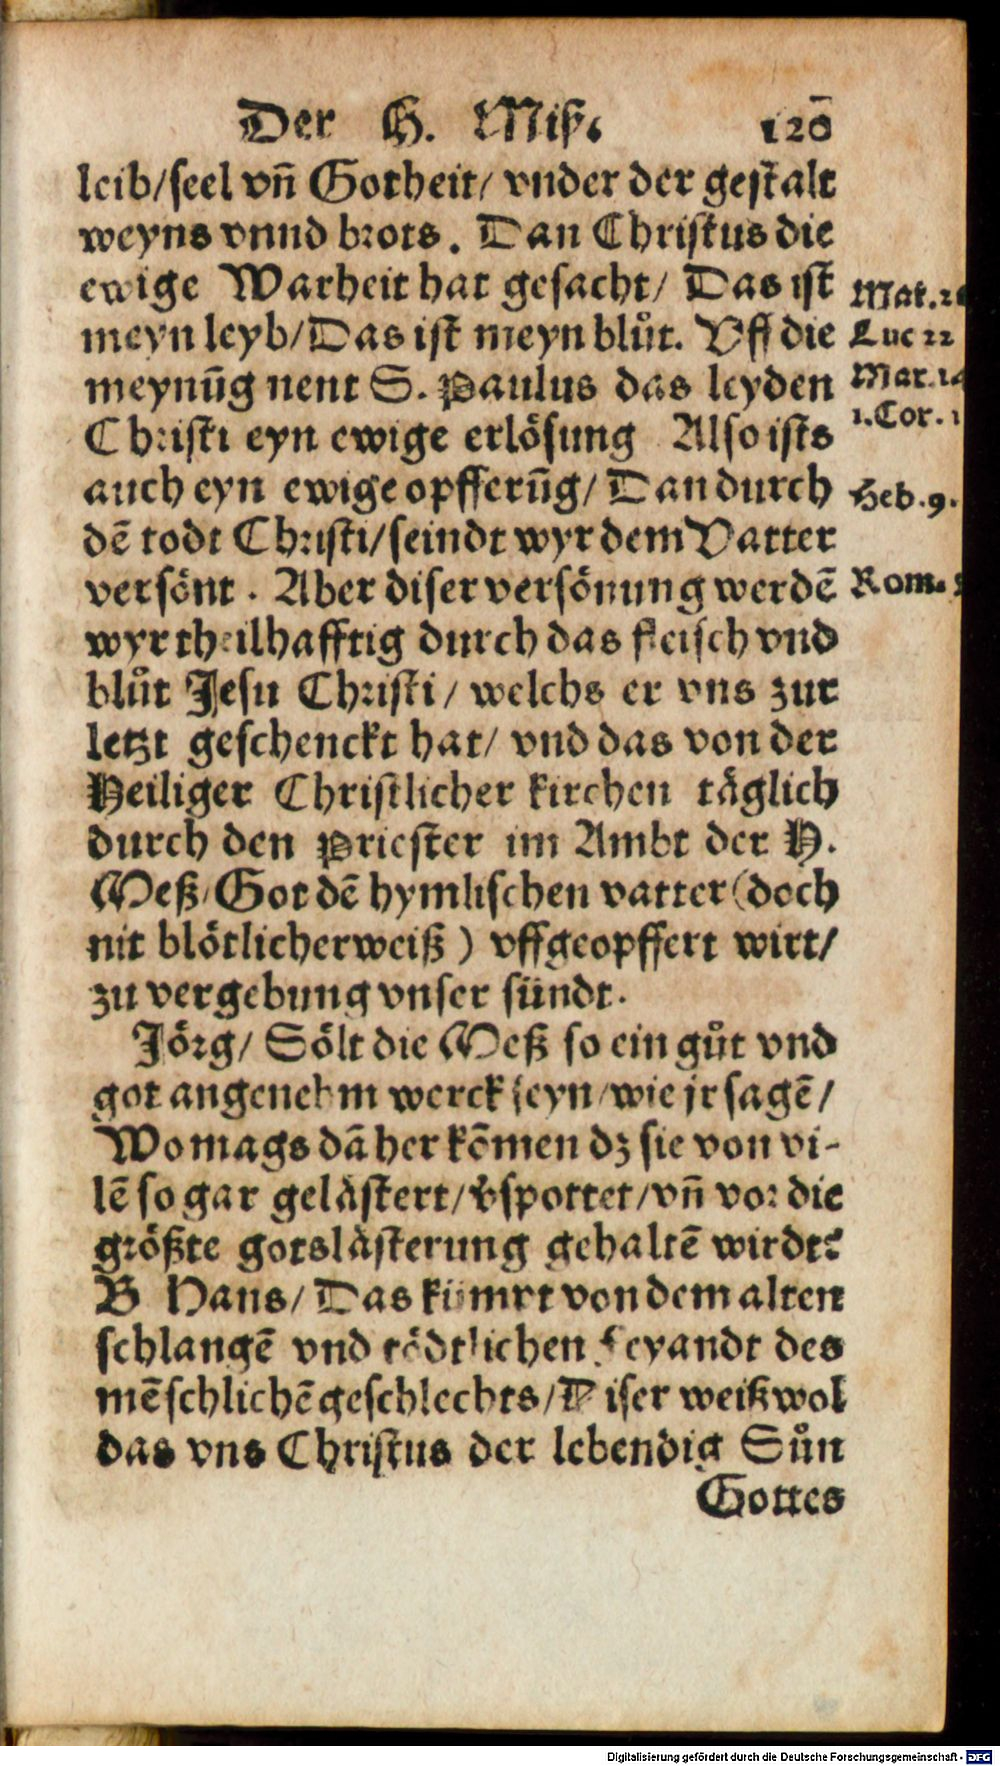 Der H. Miß. 120
leib/seel vñ Gotheit/ vnder der gestalt
weyns vnnd brots. Dan Christus die
ewige Warheit hat gesacht/ Das ist
meyn leyb/Das ist meyn blůt. Vff die
meynũg nent S. Paulus das leyden
Christi eyn ewige erlösung Also ists
auch eyn ewige opfferũg/ Dan durch
dē todt Christi/seindt wyr dem Vatter
versönt. Aber diser versönung werdē
wyr theilhafftig durch das fleisch vnd
blůt Jesu Christi/ welchs er vns zur
letzt geschenckt hat/ vnd das von der
Heiliger Christlicher kirchen täglich
durch den Priester im Ambt der H.
Meß/Got dē hymlischen vatter (doch
nit blötlicherweiß) vffgeopffert wirt/
zu vergebung vnser sündt.
Jörg/ Sölt die Meß so ein gůt vnd
got angenehm werck seyn/wie jr sagē/
Wo mags dā her kōmen dz sie von vi-
lē so gar gelästert/vspottet/vñ vor die
größte gotslästerung gehaltē wirdt?
B Hans/ Das kümrt von dem alten
schlangē vnd tödtlichen feyandt des
mēschlichē geschlechts/Diser weiß wol
das vns Christus der lebendig Sůn
Gottes
Mat. 26
Luc 22
Mar. 14
1. Cor. 1
Heb. 9.
Rom. 5
Digitalisierung gefördert durch die Deutsche Forschungsgemeinschaft - DFG